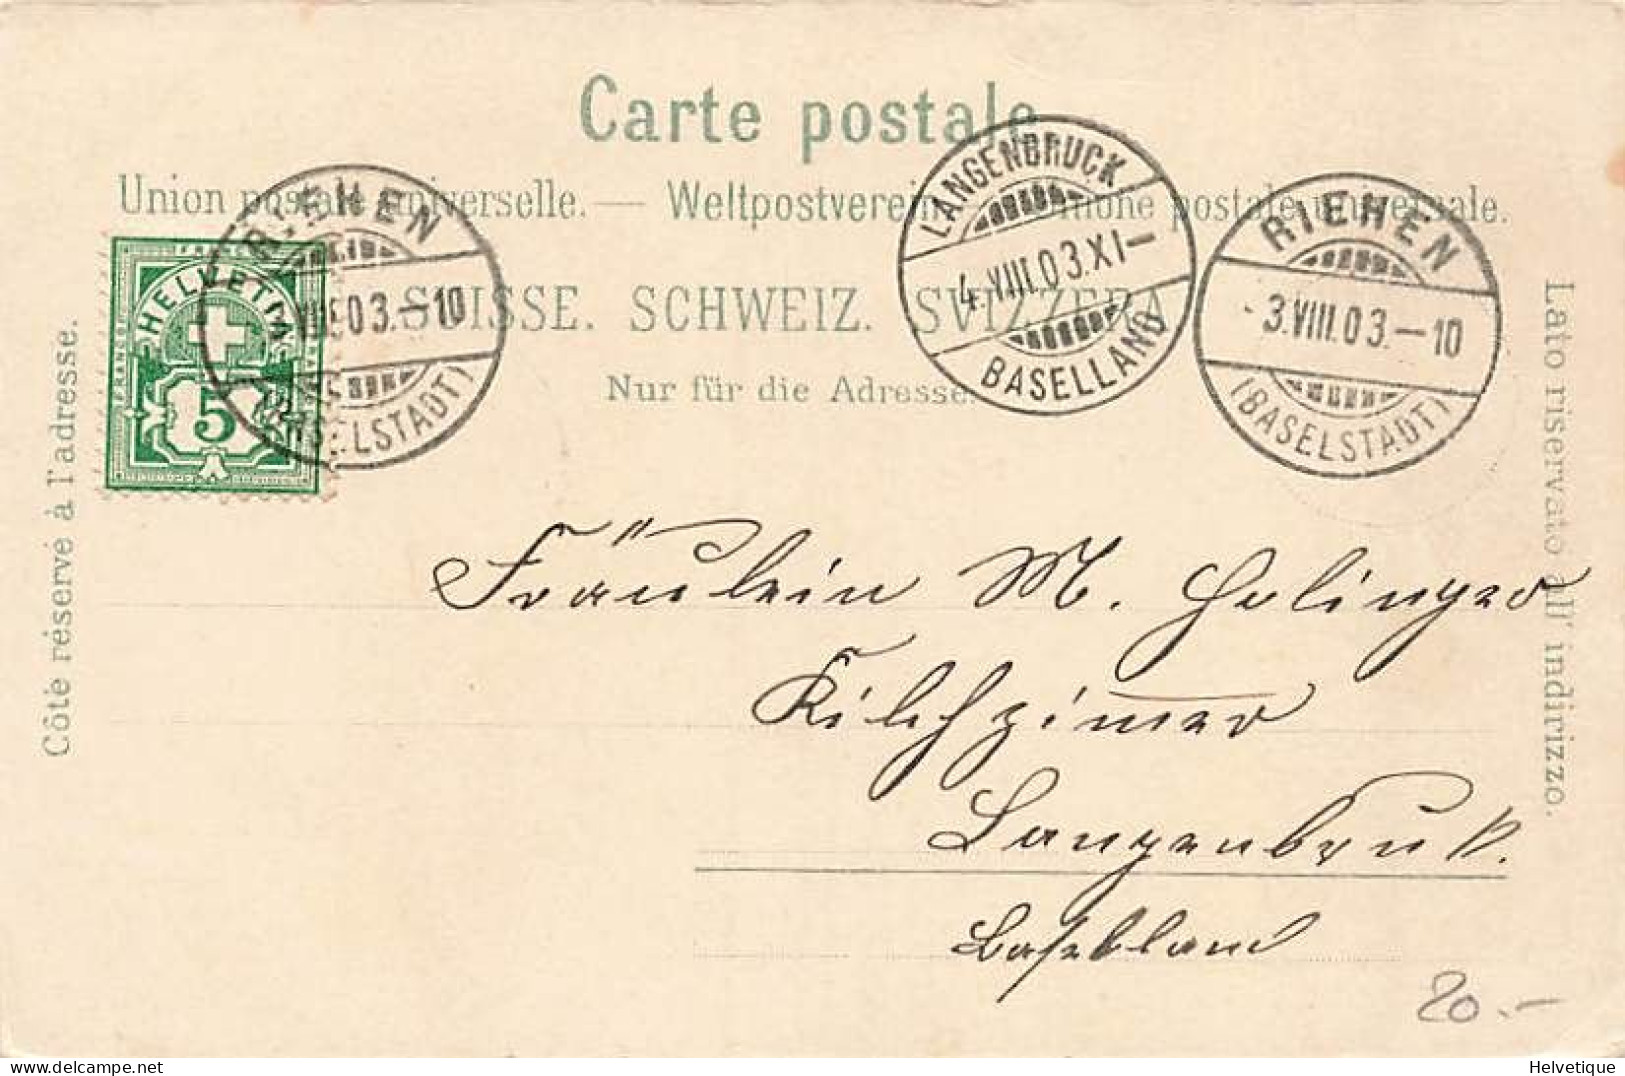 Carte postale
Union postale universelle. — Weltpostverein — Unione postale universale.
SUISSE. SCHWEIZ. SVIZZERA
Nur für die Adresse.
Côté réservé à l'adresse.
Lato riservato all' indirizzo.
FRANCO
FRANCO
HELVETIA
5
RIEHEN
VIII.03.–10
(BASELSTADT)
LANGENBRUCK
4.VIII.03.XI–
BASELLAND
RIEHEN
3.VIII.03.–10
(BASELSTADT)
Fräulein M. Holinger
Kilchzimer
Langenbruk.
Baselland
20.–
Helvetique
www.delcampe.net